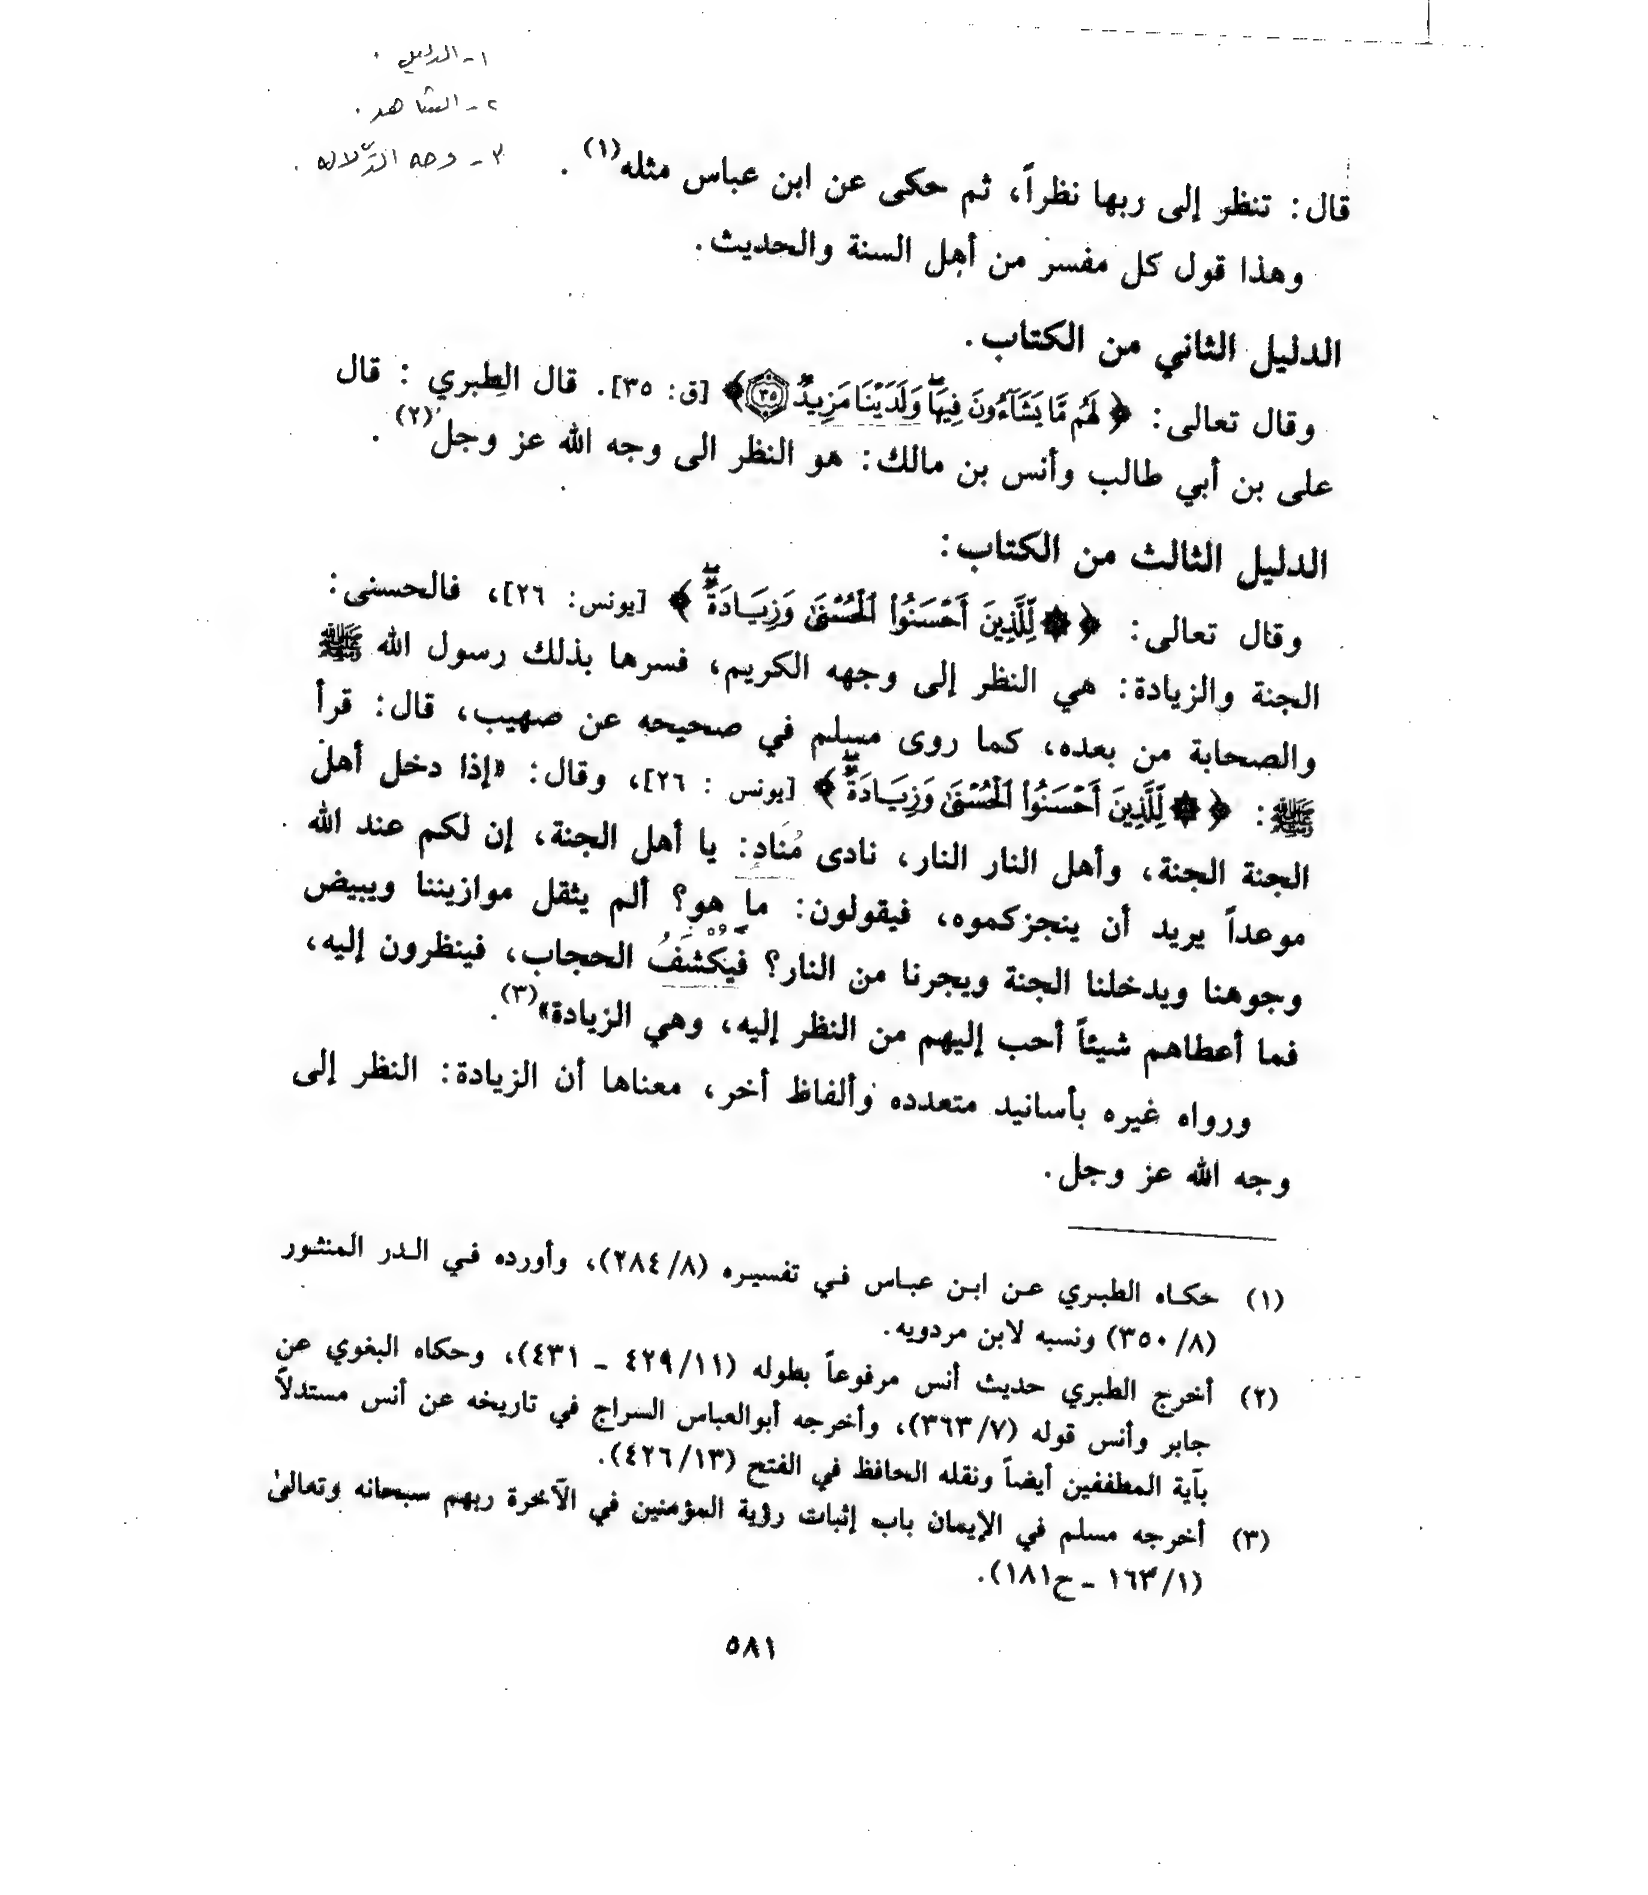 ١- الدليل .
٢- الشاهد .
٣- وجه الدّلاله .
قال: تنظر إلى ربها نظراً، ثم حكى عن ابن عباس مثله(١) .
وهذا قول كل مفسر من أهل السنة والحديث.
الدليل الثاني من الكتاب.
وقال تعالى: ﴿ لَهُم مَّا يَشَآءُونَ فِيهَا وَلَدَيْنَا مَزِيدٌ ٣٥﴾ [ق: ٣٥]. قال الطبري : قال
على بن أبي طالب وأنس بن مالك: هو النظر الى وجه الله عز وجل(٢) .
الدليل الثالث من الكتاب:
وقال تعالى: ﴿ ۞ لِّلَّذِينَ أَحْسَنُوا۟ ٱلْحُسْنَىٰ وَزِيَادَةٌ ۖ ﴾ [يونس: ٢٦]، فالحسنى:
الجنة والزيادة: هي النظر إلى وجهه الكريم، فسرها بذلك رسول الله ﷺ
والصحابة من بعده، كما روى مسلم في صحيحه عن صهيب، قال: قرأ
ﷺ: ﴿ ۞ لِّلَّذِينَ أَحْسَنُوا۟ ٱلْحُسْنَىٰ وَزِيَادَةٌ ۖ ﴾ [يونس : ٢٦]، وقال: «إذا دخل أهل
الجنة الجنة، وأهل النار النار، نادى مُنَادٍ: يا أهل الجنة، إن لكم عند الله
موعداً يريد أن ينجزكموه، فيقولون: ما هو؟ ألم يثقل موازيننا ويبيض
وجوهنا ويدخلنا الجنة ويجرنا من النار؟ فَيَكْشفُ الحجاب، فينظرون إليه،
فما أعطاهم شيئاً أحب إليهم من النظر إليه، وهي الزيادة»(٣).
ورواه غيره بأسانيد متعدده وألفاظ أخر، معناها أن الزيادة: النظر إلى
وجه الله عز وجل.
(١) حكاه الطبري عن ابن عباس في تفسيره (٢٨٤/٨)، وأورده في الدر المنثور
(٣٥٠/٨) ونسبه لابن مردويه.
(٢) أخرج الطبري حديث أنس مرفوعاً بطوله (٤٢٩/١١ ـ ٤٣١)، وحكاه البغوي عن
جابر وأنس قوله (٣٦٣/٧)، وأخرجه أبوالعباس السراج في تاريخه عن أنس مستدلاً
بآية المطففين أيضاً ونقله الحافظ في الفتح (٤٢٦/١٣).
(٣) أخرجه مسلم في الإيمان باب إثبات رؤية المؤمنين في الآخرة ربهم سبحانه وتعالى
(١٦٣/١ ـ ح١٨١).
٥٨١